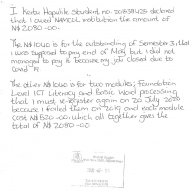 I Kerto Hopolite Student no. 201834128 declared
that I owed NAMCOL institution the amount of
N$ 2,080-00.
The N$ 1040 is for the outstanding of Semester 3, that
I was supposed to pay end of May but I did not
managed to pay it because my job closed due to
covid 19
The other N$ 1040 is for two modules; Foundation
Level ICT Literacy and Basic Word processing
that I must re-register again on 20 July 2020
because I failed them on 2019 and each module
cost N$ 520-00 which all together gives the
total of N$ 2080-00